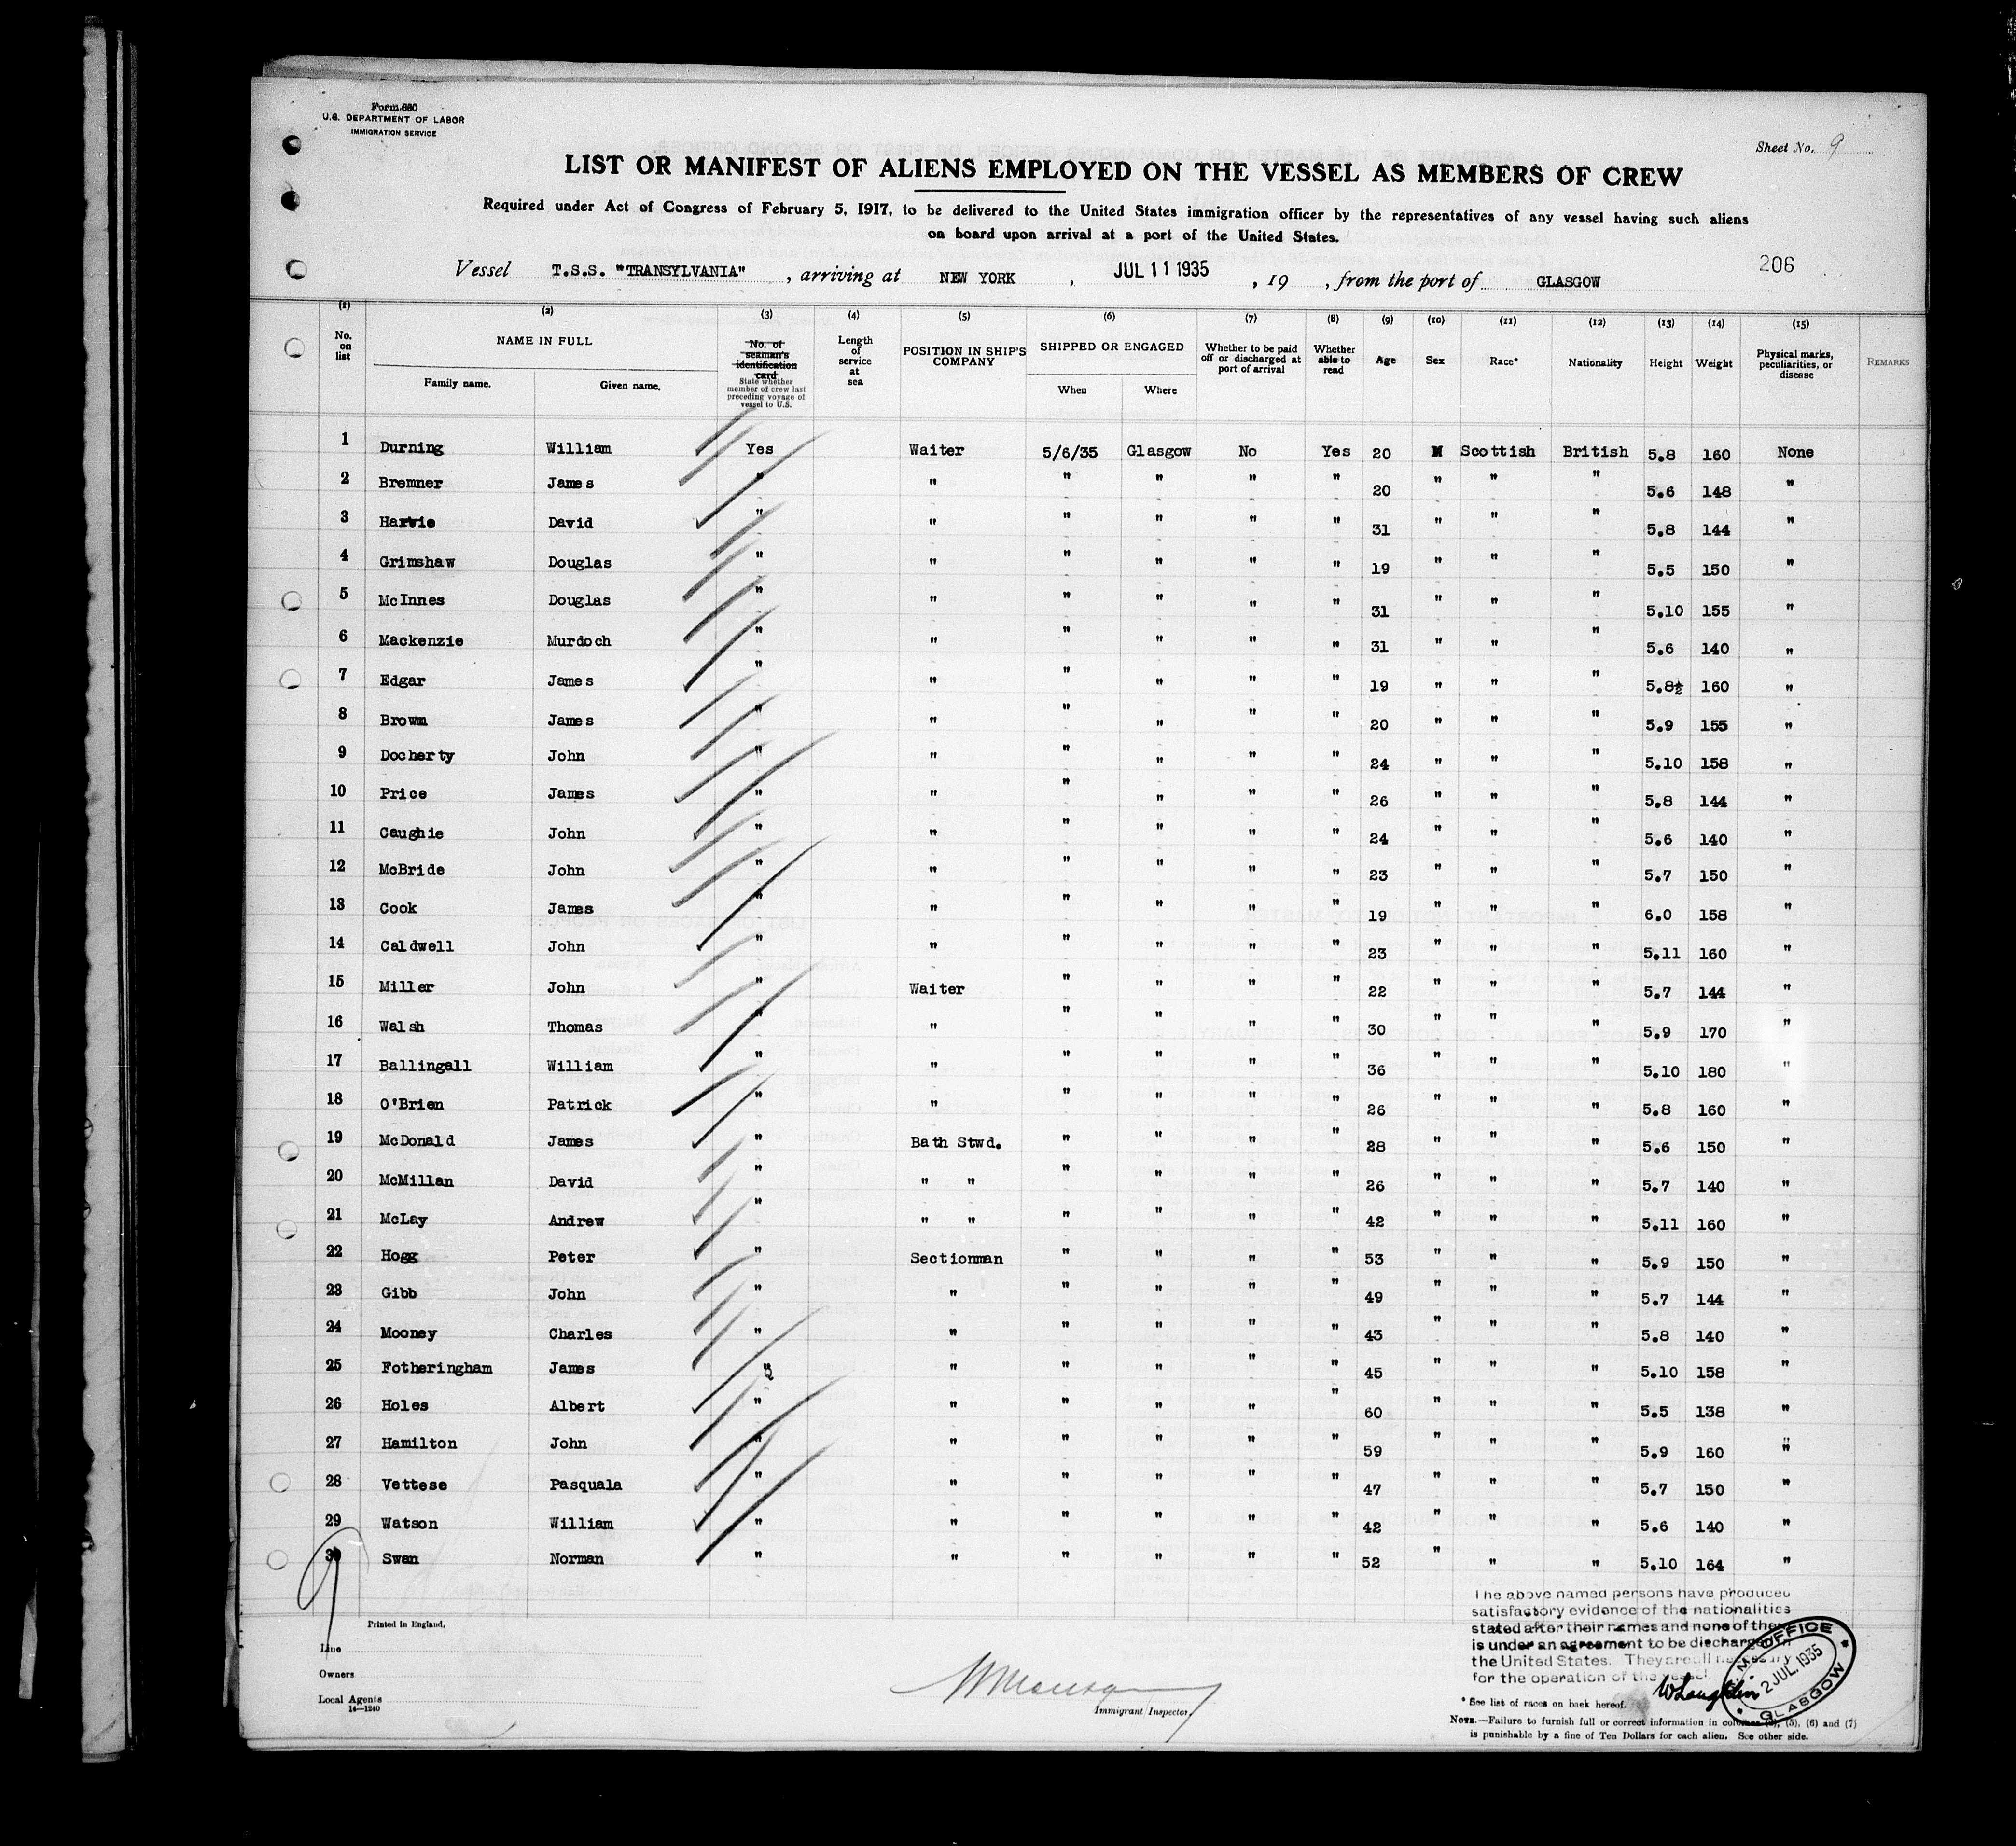 Form 680
U.S. DEPARTMENT OF LABOR
IMMIGRATION SERVICE
Sheet No. 9
LIST OR MANIFEST OF ALIENS EMPLOYED ON THE VESSEL AS MEMBERS OF CREW
Required under Act of Congress of February 5, 1917, to be delivered to the United States immigration officer by the representatives of any vessel having such aliens
on board upon arrival at a port of the United States.
Vessel T.S.S. "TRANSYLVANIA", arriving at NEW YORK, JUL 11 1935, 19 , from the port of GLASGOW 206
(1) (2) (3) (4) (5) (6) (7) (8) (9) (10) (11) (12) (13) (14) (15)
No. on list NAME IN FULL Family name. Given name. No. of seaman's identification card State whether member of crew last preceding voyage of vessel to U.S. Length of service at sea POSITION IN SHIP'S COMPANY SHIPPED OR ENGAGED When Where Whether to be paid off or discharged at port of arrival Whether able to read Age Sex Race* Nationality Height Weight Physical marks, peculiarities, or disease REMARKS
1 Durning William Yes Waiter 5/6/35 Glasgow No Yes 20 M Scottish British 5.8 160 None
2 Bremner James " " " " " " 20 " " " 5.6 148 "
3 Harvie David " " " " " " 31 " " " 5.8 144 "
4 Grimshaw Douglas " " " " " " 19 " " " 5.5 150 "
5 McInnes Douglas " " " " " " 31 " " " 5.10 155 "
6 Mackenzie Murdoch " " " " " " 31 " " " 5.6 140 "
7 Edgar James " " " " " " 19 " " " 5.8½ 160 "
8 Brown James " " " " " " 20 " " " 5.9 155 "
9 Docherty John " " " " " " 24 " " " 5.10 158 "
10 Price James " " " " " " 26 " " " 5.8 144 "
11 Caughie John " " " " " " 24 " " " 5.6 140 "
12 McBride John " " " " " " 23 " " " 5.7 150 "
13 Cook James " " " " " " 19 " " " 6.0 158 "
14 Caldwell John " " " " " " 23 " " " 5.11 160 "
15 Miller John " Waiter " " " " 22 " " " 5.7 144 "
16 Walsh Thomas " " " " " " 30 " " " 5.9 170 "
17 Ballingall William " " " " " " 36 " " " 5.10 180 "
18 O'Brien Patrick " " " " " " 26 " " " 5.8 160 "
19 McDonald James " Bath Stwd. " " " " 28 " " " 5.6 150 "
20 McMillan David " " " " " " " 26 " " " 5.7 140 "
21 McLay Andrew " " " " " " " 42 " " " 5.11 160 "
22 Hogg Peter " Sectionman " " " " 53 " " " 5.9 150 "
23 Gibb John " " " " " " 49 " " " 5.7 144 "
24 Mooney Charles " " " " " " 43 " " " 5.8 140 "
25 Fotheringham James " " " " " " 45 " " " 5.10 158 "
26 Holes Albert " " " " " " 60 " " " 5.5 138 "
27 Hamilton John " " " " " " 59 " " " 5.9 160 "
28 Vettese Pasquala " " " " " " 47 " " " 5.7 150 "
29 Watson William " " " " " " 42 " " " 5.6 140 "
30 Swan Norman " " " " " " 52 " " " 5.10 164 "
9
The above named persons have produced
satisfactory evidence of the nationalities
stated after their names and none of them
is under an agreement to be discharged in
the United States. They are all necessary
for the operation of the vessel.
Printed in England.
Line
Owners
Local Agents
14—1240
Immigrant Inspector.
M. OFFICE 2 JUL. 1935 GLASGOW
* See list of races on back hereof.
NOTE.—Failure to furnish full or correct information in columns (5), (6) and (7)
is punishable by a fine of Ten Dollars for each alien. See other side.